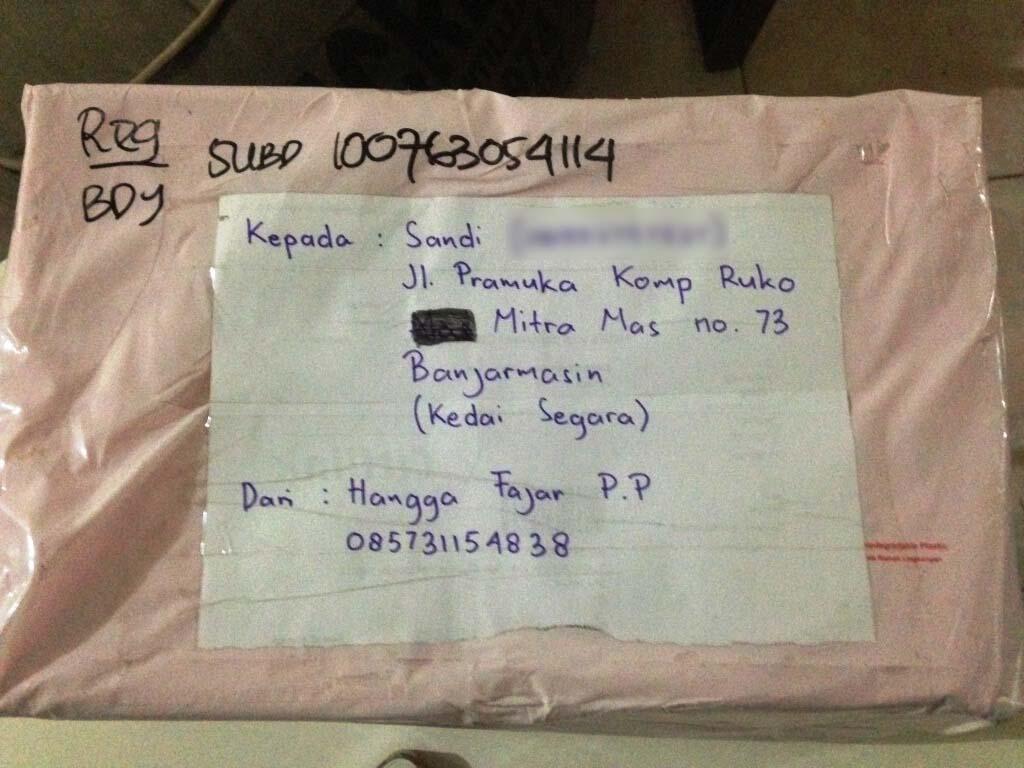 Reg SUBD 100763054114
BDJ
Kepada : Sandi
Jl. Pramuka Komp Ruko
Mitra Mas no. 73
Banjarmasin
(Kedai Segara)
Dari : Hangga Fajar P.P
085731154838